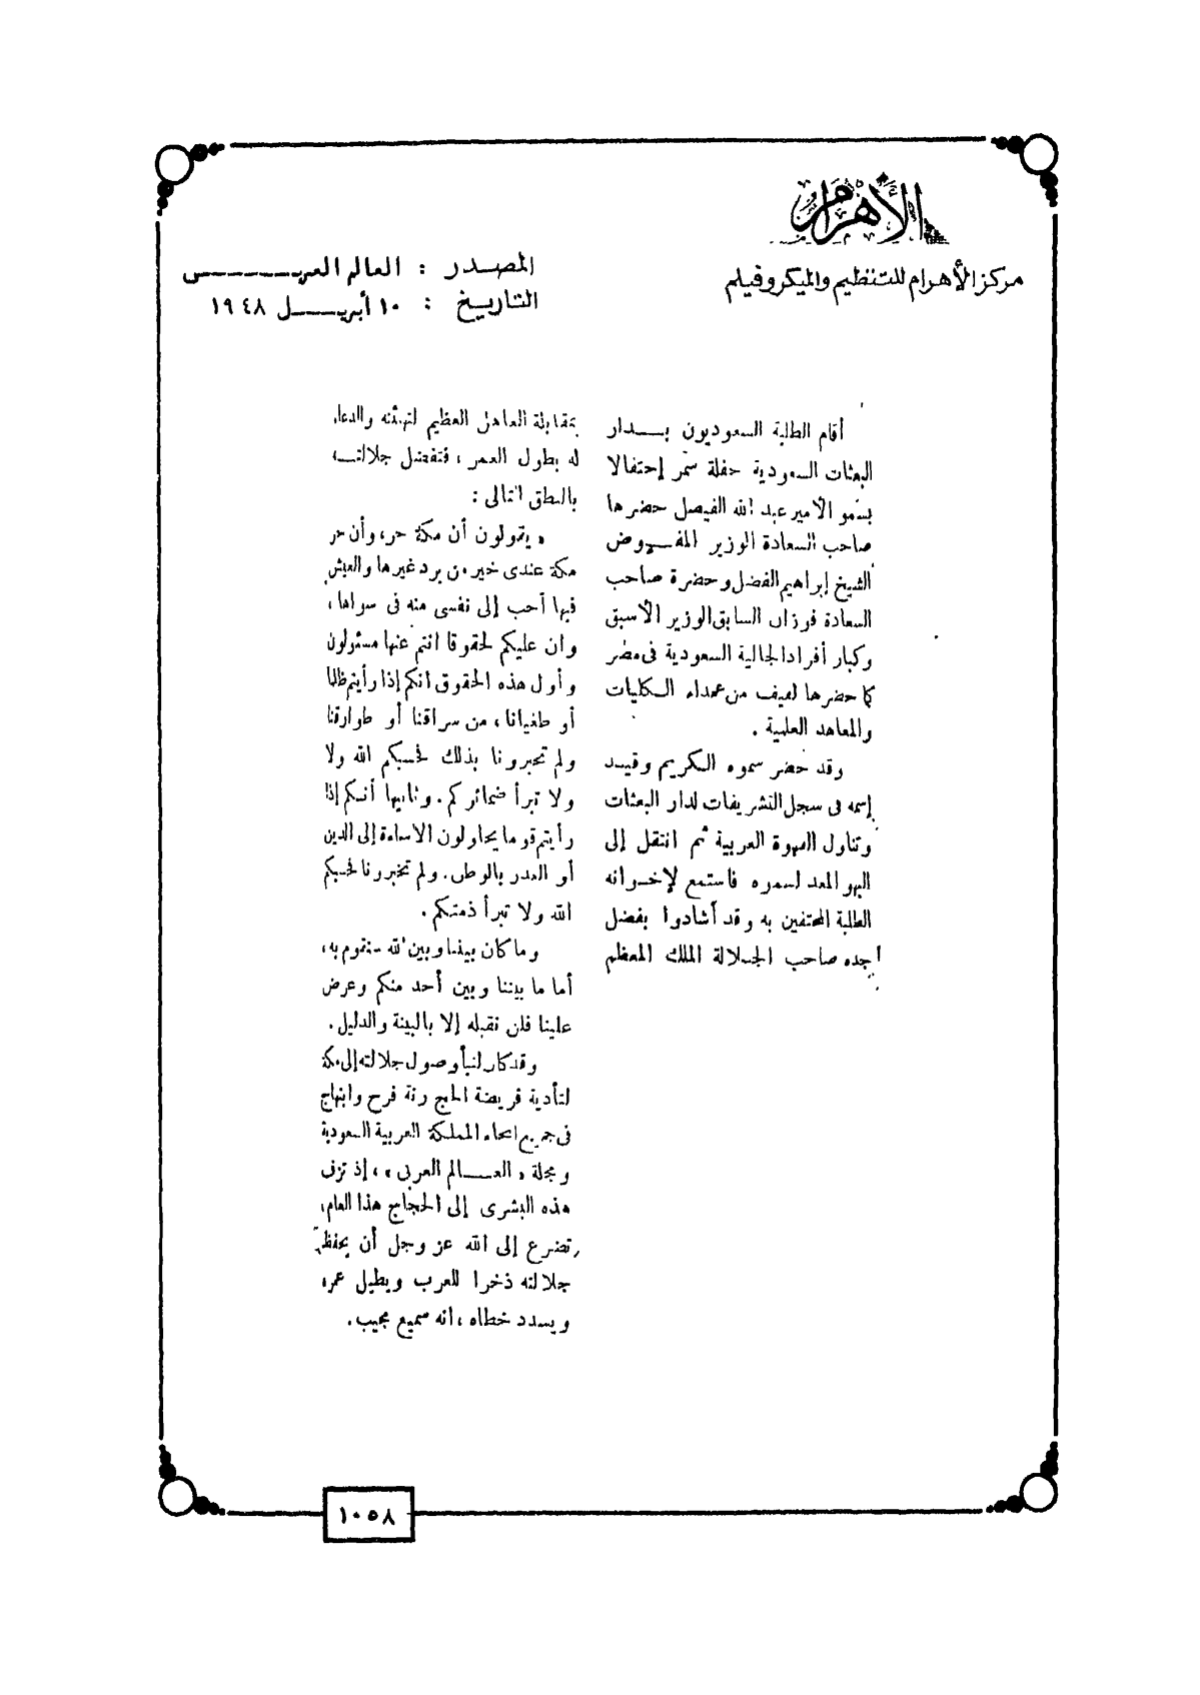 الأهرام
مركز الأهرام للتنظيم والميكروفيلم
المصدر : العالم العربى
التاريخ : ١٠ أبريل ١٩٤٨
أقام الطلبة السعوديون بدار
البعثات السعودية حفلة سمر إحتفالا
بسمو الأمير عبد الله الفيصل حضرها
صاحب السعادة الوزير المفوض
الشيخ إبراهيم الفضل وحضرة صاحب
السعادة فوزان السابق الوزير الأسبق
وكبار أفراد الجالية السعودية فى مصر
كما حضرها لفيف من عمداء الكليات
والمعاهد العلمية .
وقد حضر سموه الكريم وقيد
إسمه فى سجل التشريفات لدار البعثات
وتناول القهوة العربية ثم انتقل إلى
البهو المعد لسمره فاستمع لإخوانه
الطلبة المحتفين به وقد أشادوا بفضل
جده صاحب الجلالة الملك المعظم
بمقابلة العاهل العظيم لتهنئته والدعاء
له بطول العمر ، فتفضل جلالته
بالنطق التالى :
« يقولون أن مكة حر، وأن حر
مكة عندى خير من برد غيرها والعيش
فيها أحب إلى نفسى منه فى سواها ،
وان عليكم لحقوقا انتم عنها مسئولون
وأول هذه الحقوق انكم إذا رأيتم ظلما
أو طغيانا ، من سراقنا أو طوارقنا
ولم تخبرونا بذلك فحسبكم الله ولا
ولا تبرأ ضمائركم . وثانيها أنكم إذا
رأيتم قوما يحاولون الاساءة إلى الدين
أو الغدر بالوطن . ولم تخبرونا فحسبكم
الله ولا تبرأ ذمتكم .
وما كان بيننا وبين الله سنقوم به ،
أما ما بيننا وبين أحد منكم وعرض
علينا فلن نقبله إلا بالبينة والدليل .
وقد كان لنبأ وصول جلالته إلى مكة
لتأدية فريضة الحج رنة فرح وابتهاج
فى جميع انحاء المملكة العربية السعودية
ومجلة « العالم العربى » ، إذ تزف
هذه البشرى إلى الحجاج هذا العام ،
تضرع إلى الله عز وجل أن يحفظ
جلالته ذخرا للعرب ويطيل عمره
ويسدد خطاه ، انه سميع مجيب .
١٠٥٨